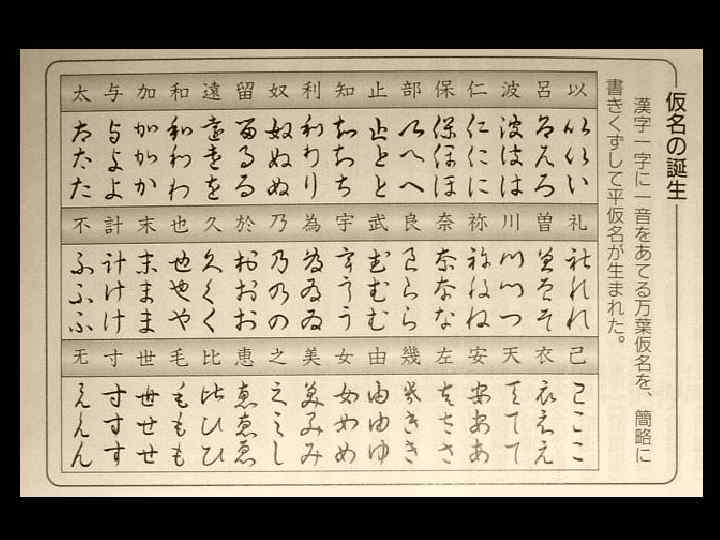 仮名の誕生
漢字一字に一音をあてる万葉仮名を、簡略に
書きくずして平仮名が生まれた。
以 呂 波 仁 保 部 止 知 利 奴 留 遠 和 加 与 太
い ろ は に ほ へ と ち り ぬ る を わ か よ た
礼 曽 川 祢 奈 良 武 宇 為 乃 於 久 也 末 計 不
れ そ つ ね な ら む う ゐ の お く や ま け ふ
己 衣 天 安 左 幾 由 女 美 之 恵 比 毛 世 寸 无
こ え て あ さ き ゆ め み し ゑ ひ も せ す ん